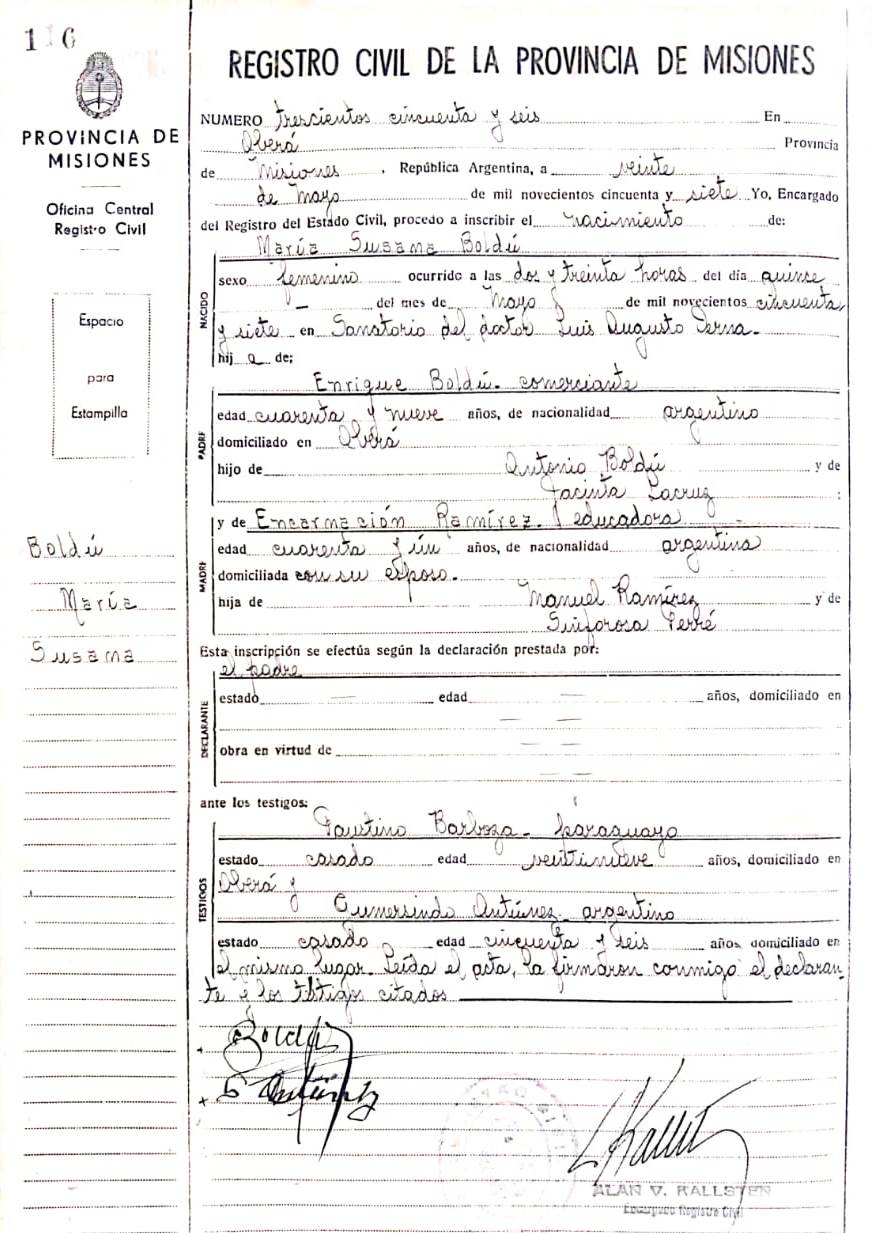 116
PROVINCIA DE
MISIONES
Oficina Central
Registro Civil
Espacio
para
Estampilla
Boldú
María
Susana
REGISTRO CIVIL DE LA PROVINCIA DE MISIONES
NUMERO trescientos cincuenta y seis En
Oberá Provincia
de Misiones , República Argentina, a veinte
de Mayo de mil novecientos cincuenta y siete Yo, Encargado
del Registro del Estado Civil, procedo a inscribir el nacimiento de:
María Susana Boldú
NACIDO
sexo femenino ocurrido a las dos y treinta horas del día quince
del mes de Mayo de mil novecientos cincuenta
y siete en Sanatorio del doctor Luis Augusto Perna.
hij a de;
PADRE
Enrique Boldú. comerciante
edad cuarenta y nueve años, de nacionalidad argentino
domiciliado en Oberá
hijo de Antonio Boldú y de
Jacinta Lacruz ;
MADRE
y de Encarnación Ramírez. educadora
edad cuarenta y ún años, de nacionalidad argentina
domiciliada con su esposo.
hija de Manuel Ramírez y de
Sinforosa Ferré
Esta inscripción se efectúa según la declaración prestada por:
el padre
DECLARANTE
estado — edad — años, domiciliado en
— —
obra en virtud de — —
— —
ante los testigos:
TESTIGOS
Faustino Barboza - paraguayo
estado casado edad veintinueve años, domiciliado en
Oberá y
Gumersindo Antúnez - argentino
estado casado edad cincuenta y seis años domiciliado en
el mismo lugar. Leída el acta, la firmaron conmigo el declaran-
te y los testigos citados
Boldú
G Antúnez
ALAN V. KALLSTEN
Encargado Registro Civil